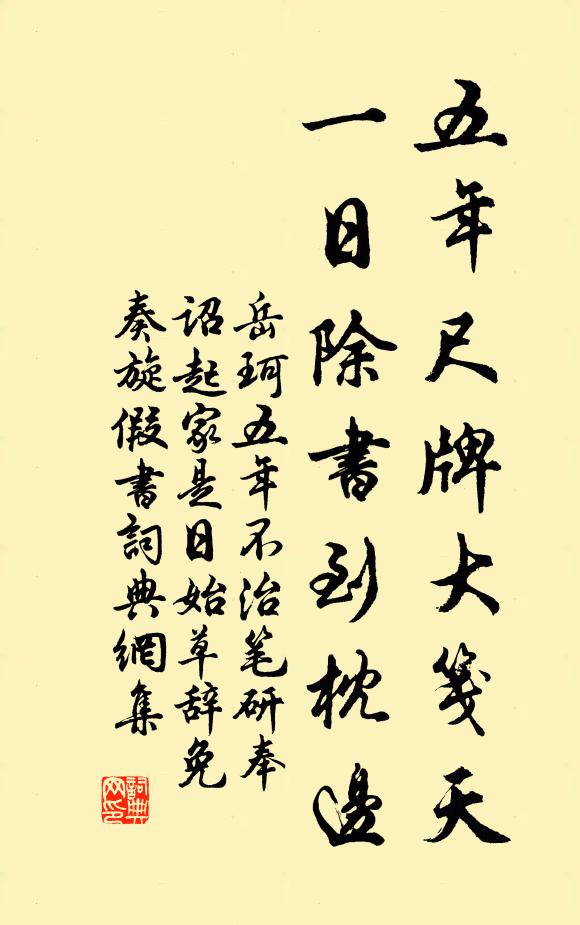 五年尺牌大笺天
一日除書到枕邊
岳珂五年不治笔研奉
诏起家是日始草辞免
奏旋假書詞典網集
詞典
网印